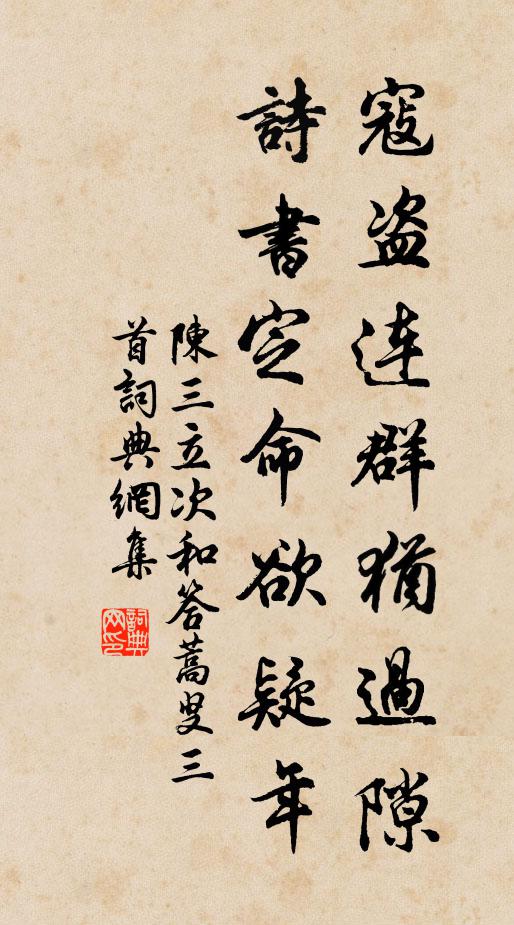 寇盗连群猶過隙
詩書定命欲疑年
陳三立次和答蒿叟三
首詞典網集
詞典网印